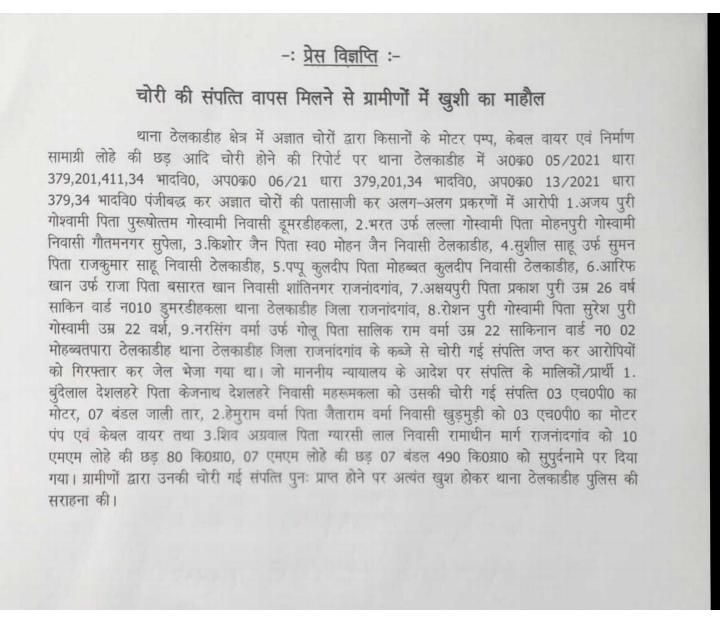 -: प्रेस विज्ञप्ति :-
चोरी की संपत्ति वापस मिलने से ग्रामीणों में खुशी का माहौल
थाना ठेलकाडीह क्षेत्र में अज्ञात चोरों द्वारा किसानों के मोटर पम्प, केबल वायर एवं निर्माण
सामाग्री लोहे की छड़ आदि चोरी होने की रिपोर्ट पर थाना ठेलकाडीह में अ0क0 05/2021 धारा
379,201,411,34 भादवि0, अप0क0 06/21 धारा 379,201,34 भादवि0, अप0क0 13/2021 धारा
379,34 भादवि0 पंजीबद्ध कर अज्ञात चोरों की पतासाजी कर अलग-अलग प्रकरणों में आरोपी 1.अजय पुरी
गोश्वामी पिता पुरूषोत्तम गोस्वामी निवासी डूमरडीहकला, 2.भरत उर्फ लल्ला गोस्वामी पिता मोहनपुरी गोस्वामी
निवासी गौतमनगर सुपेला, 3.किशोर जैन पिता स्व0 मोहन जैन निवासी ठेलकाडीह, 4.सुशील साहू उर्फ सुमन
पिता राजकुमार साहू निवासी ठेलकाडीह, 5.पप्पू कुलदीप पिता मोहब्बत कुलदीप निवासी ठेलकाडीह, 6.आरिफ
खान उर्फ राजा पिता बसारत खान निवासी शांतिनगर राजनांदगांव, 7.अक्षयपुरी पिता प्रकाश पुरी उम्र 26 वर्ष
साकिन वार्ड न010 डुमरडीहकला थाना ठेलकाडीह जिला राजनांदगांव, 8.रोशन पुरी गोस्वामी पिता सुरेश पुरी
गोस्वामी उम्र 22 वर्श, 9.नरसिंग वर्मा उर्फ गोलू पिता सालिक राम वर्मा उम्र 22 साकिनान वार्ड न0 02
मोहब्बतपारा ठेलकाडीह थाना ठेलकाडीह जिला राजनांदगांव के कब्जे से चोरी गई संपत्ति जप्त कर आरोपियों
को गिरफ्तार कर जेल भेजा गया था। जो माननीय न्यायालय के आदेश पर संपत्ति के मालिकों/प्रार्थी 1.
बुंदेलाल देशलहरे पिता केजनाथ देशलहरे निवासी महरूमकला को उसकी चोरी गई संपत्ति 03 एच0पी0 का
मोटर, 07 बंडल जाली तार, 2.हेमुराम वर्मा पिता जैताराम वर्मा निवासी खुड़मुड़ी को 03 एच0पी0 का मोटर
पंप एवं केबल वायर तथा 3.शिव अग्रवाल पिता ग्यारसी लाल निवासी रामाधीन मार्ग राजनांदगांव को 10
एमएम लोहे की छड़ 80 कि0ग्रा0, 07 एमएम लोहे की छड़ 07 बंडल 490 कि0ग्रा0 को सुपुर्दनामे पर दिया
गया। ग्रामीणों द्वारा उनकी चोरी गई संपत्ति पुनः प्राप्त होने पर अत्यंत खुश होकर थाना ठेलकाडीह पुलिस की
सराहना की।